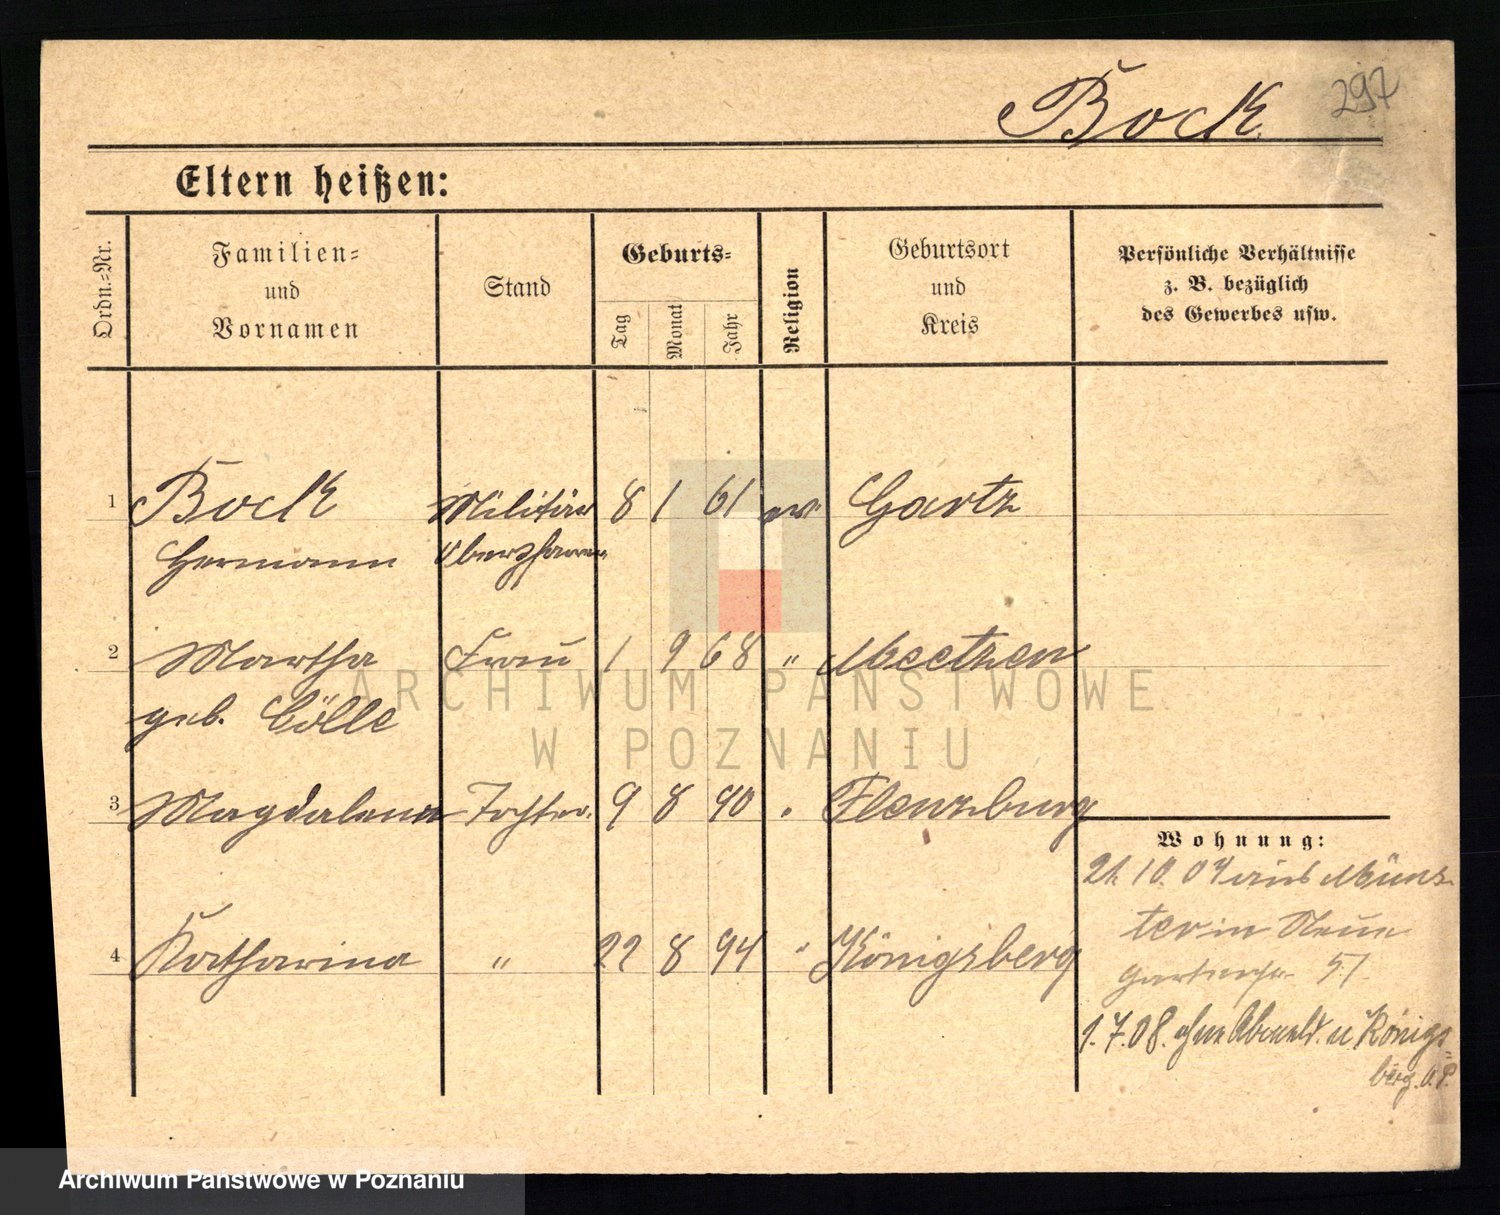 Bock
297
Eltern heißen:
Ordn.-Nr.
Familien-
und
Vornamen
Stand
Geburts-
Tag
Monat
Jahr
Religion
Geburtsort
und
Kreis
Persönliche Verhältnisse
z. B. bezüglich
des Gewerbes usw.
1 Bock Militär 8 1 61 ev. Gartz
Hermann
2 Martha Frau 1 9 68 " Meetzen
geb. Cölle
3 Magdalena Tochter 9 8 90 " Flensburg
Wohnung:
21. 10. 04 aus Müns-
ter in Neue
Gartenstr. 57
4 Katharina " 22 8 94 " Königsberg
1.7.08. ohne Abmeld. n. Königs-
berg. O.P.
ARCHIWUM PAŃSTWOWE
W POZNANIU
Archiwum Państwowe w Poznaniu